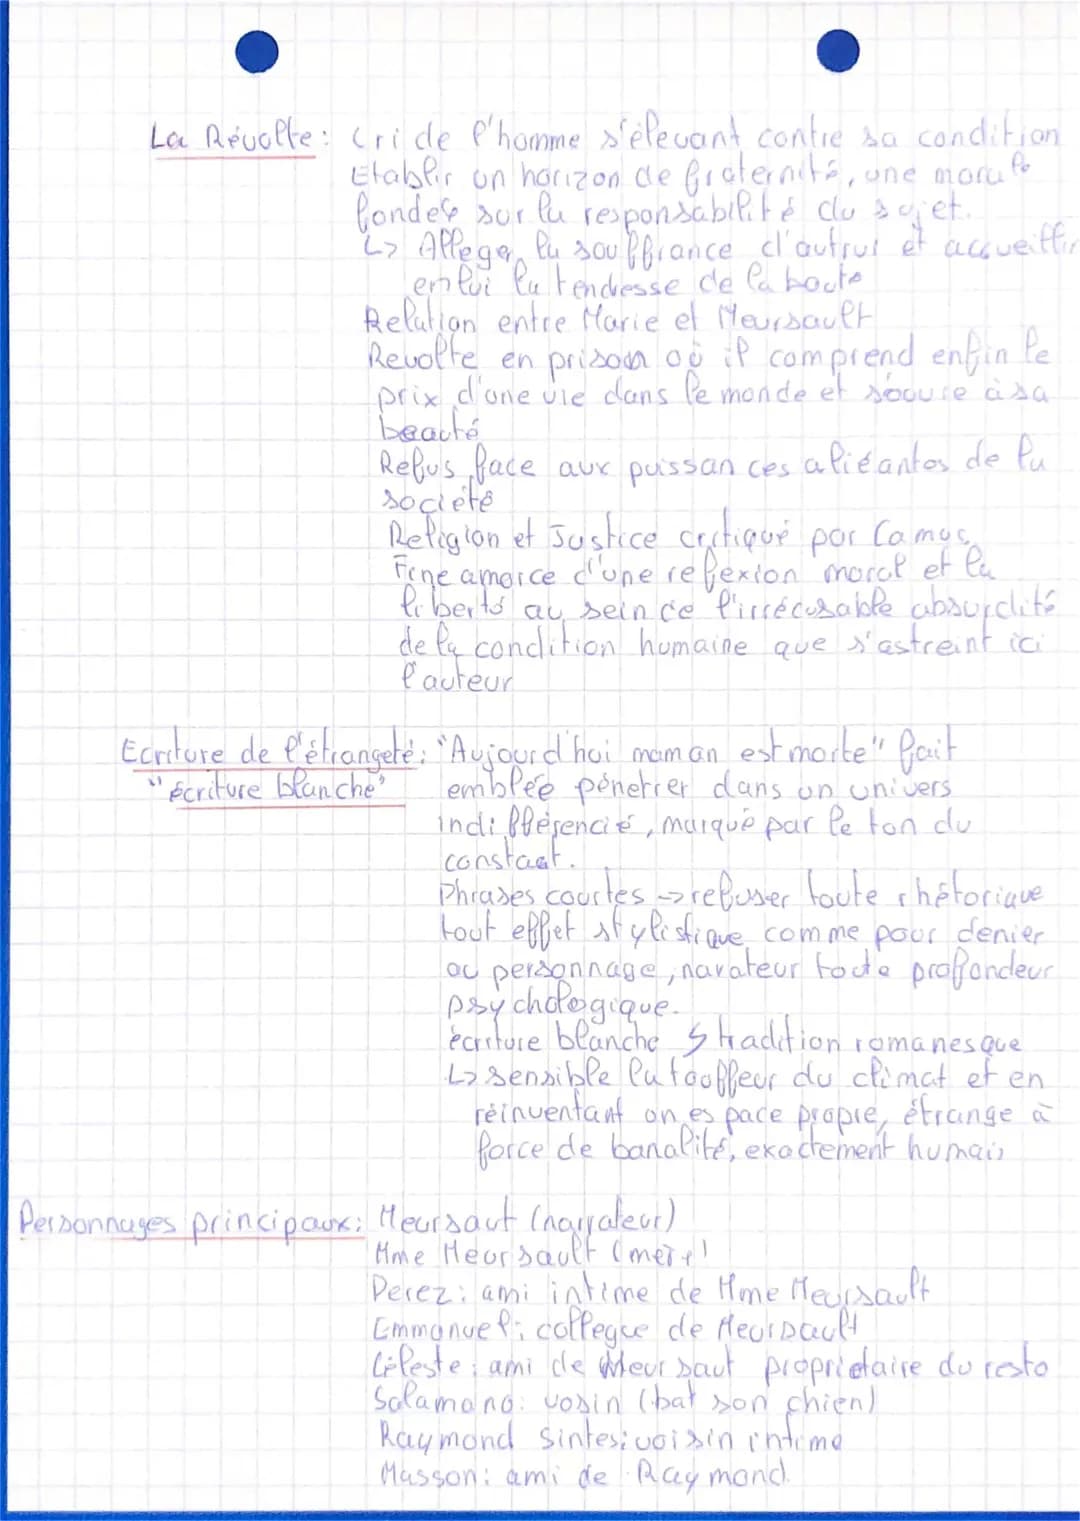 La Révolte: Cri de l'homme s'élevant contre sa condition
Etablir un horizon de fraternité, une morale
fondée sur la responsabilité du sujet.
↳ Alleger la souffrance d'autrui et accueillir
en lui la tendresse de la
Relation entre Marie et Meursault
Revolte en prison où il comprend enfin le
prix d'une vie dans le monde et à sa
beauté
Refus face aux puissances aliéantes de la
société
Religion et Justice critiqué par Camus
Fine amorce d'une reflexion moral et la
liberté au sein de l'irrécusable absurdité
de la condition humaine que s'astreint ici
l'auteur
Ecriture de l'étrangeté: "Aujourd'hui maman est morte" fait
"écriture blanche" emblée pénetrer dans un univers
indifférencié, marqué par le ton du
constat.
Phrases courtes -> refuser toute rhétorique
tout effet stylistique comme pour denier
au personnage, narateur toute profondeur
psychologique.
écriture blanche ↯ tradition romanesque
↳ sensible la touffeur du climat et en
réinventant un espace propre, étrange à
force de banalité, exactement humain
Personnages principaux: Meursaut (narrateur)
Mme Meursault (mère)
Perez: ami intime de Mme Meursault
Emmanuel: collegue de Meursault
Céleste: ami de Meursaut proprietaire du resto
Salamano: vosin (bat son chien)
Raymond Sintes: voisin intime
Masson: ami de Raymond.